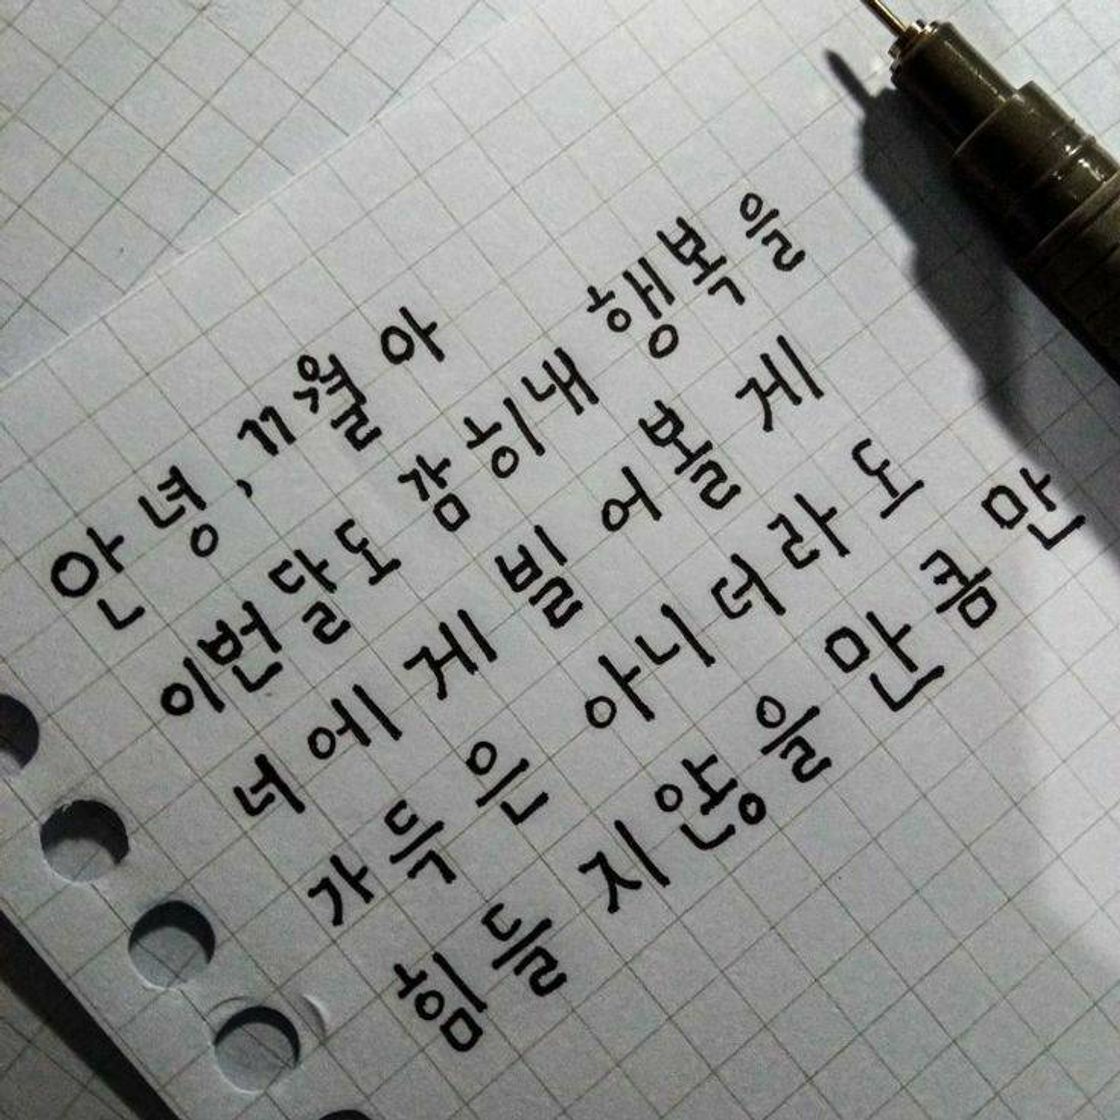 안녕, 11월아
이번 달도 감히 내 행복을
너에게 빌어볼게
가득은 아니더라도
힘들지 않을 만큼만